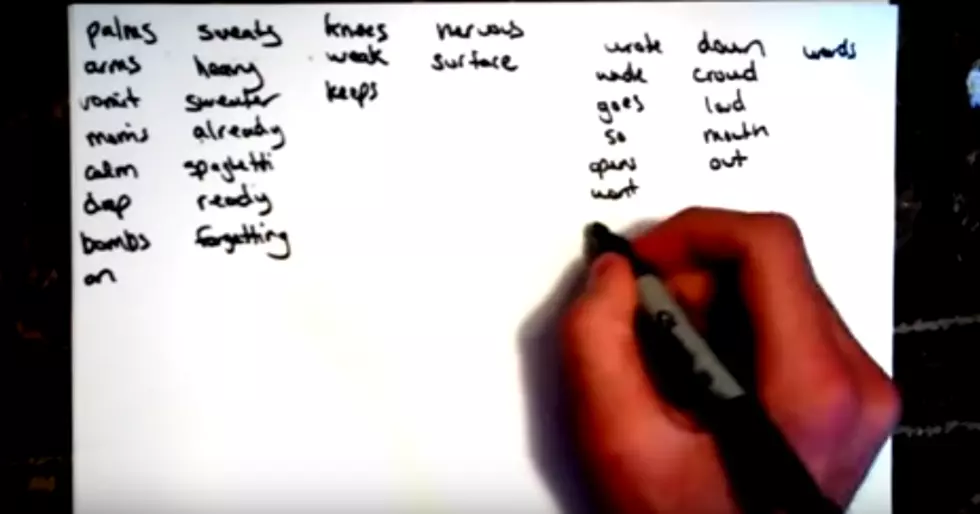 palms sweaty knees nervous
arms heavy weak surface
vomit sweater keeps
moms already
calm spaghetti
drop ready
bombs forgetting
on
wrote down words
whole crowd
goes loud
so mouth
opens out
wont